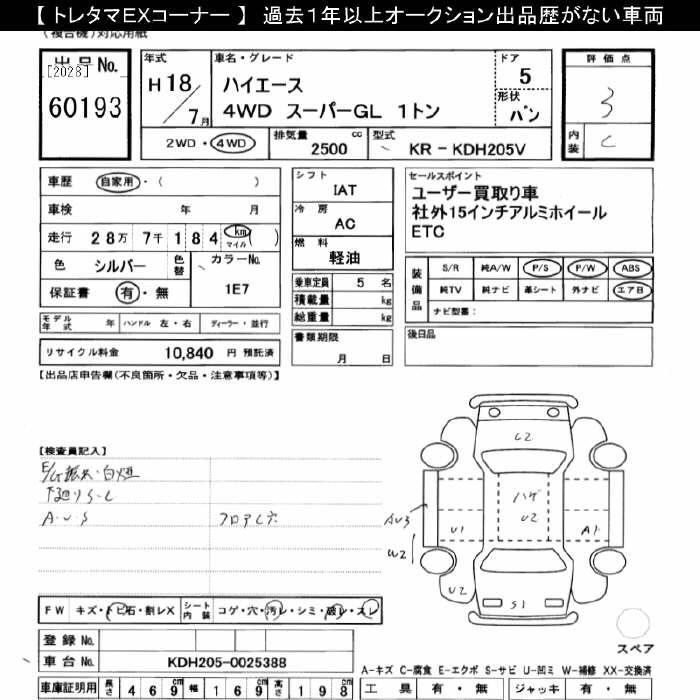 【 トレタマEXコーナー 】 過去１年以上オークション出品歴がない車両
(複合機)対応用紙
出品No. [2028] 60193
年式 H18/7月
車名・グレード
ハイエース
4WD スーパーGL 1トン
ドア 5
形状 バン
評価点 3
内装 C
2WD・4WD 排気量 2500 cc 型式 KR-KDH205V
車歴 自家用・( )
車検 年 月
走行 28万 7千184 km マイル ( )
色 シルバー 色替 カラーNo. 1E7
保証書 有・無
シフト IAT
冷房 AC
燃料 軽油
乗車定員 5 名
積載量 kg
総重量 kg
書類期限
月 日
セールスポイント
ユーザー買取り車
社外15インチアルミホイール
ETC
装備品
S/R 純A/W P/S P/W ABS
純TV 純ナビ 革シート 外ナビ エアB
ナビ型番:
後日品
モデル年式 年 ハンドル 左・右 ディーラー・並行
リサイクル料金 10,840 円 預託済
【出品店申告欄(不良箇所・欠品・注意事項等)】
【検査員記入】
E/G振大・白煙
下廻りS・C
A・U・S フロアC穴
C2
ハゲ
U2
AU3
W2
U1
A1
U2
S1
スペア
FW キズ・トビ石・割レX シート内装 コゲ・穴・汚レ・シミ・破レ・スレ
登録No.
車台No. KDH205-0025388
A-キズ C-腐食 E-エクボ S-サビ U-凹ミ W-補修 XX-交換済
車庫証明用 長さ 469cm 幅 169cm 高さ 198cm
工具 有・無 ジャッキ 有・無